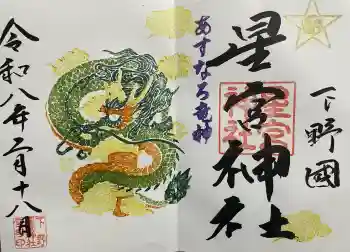 下野國
星宮神社
星宮神社
あすなろ竜神
令和八年二月十八日